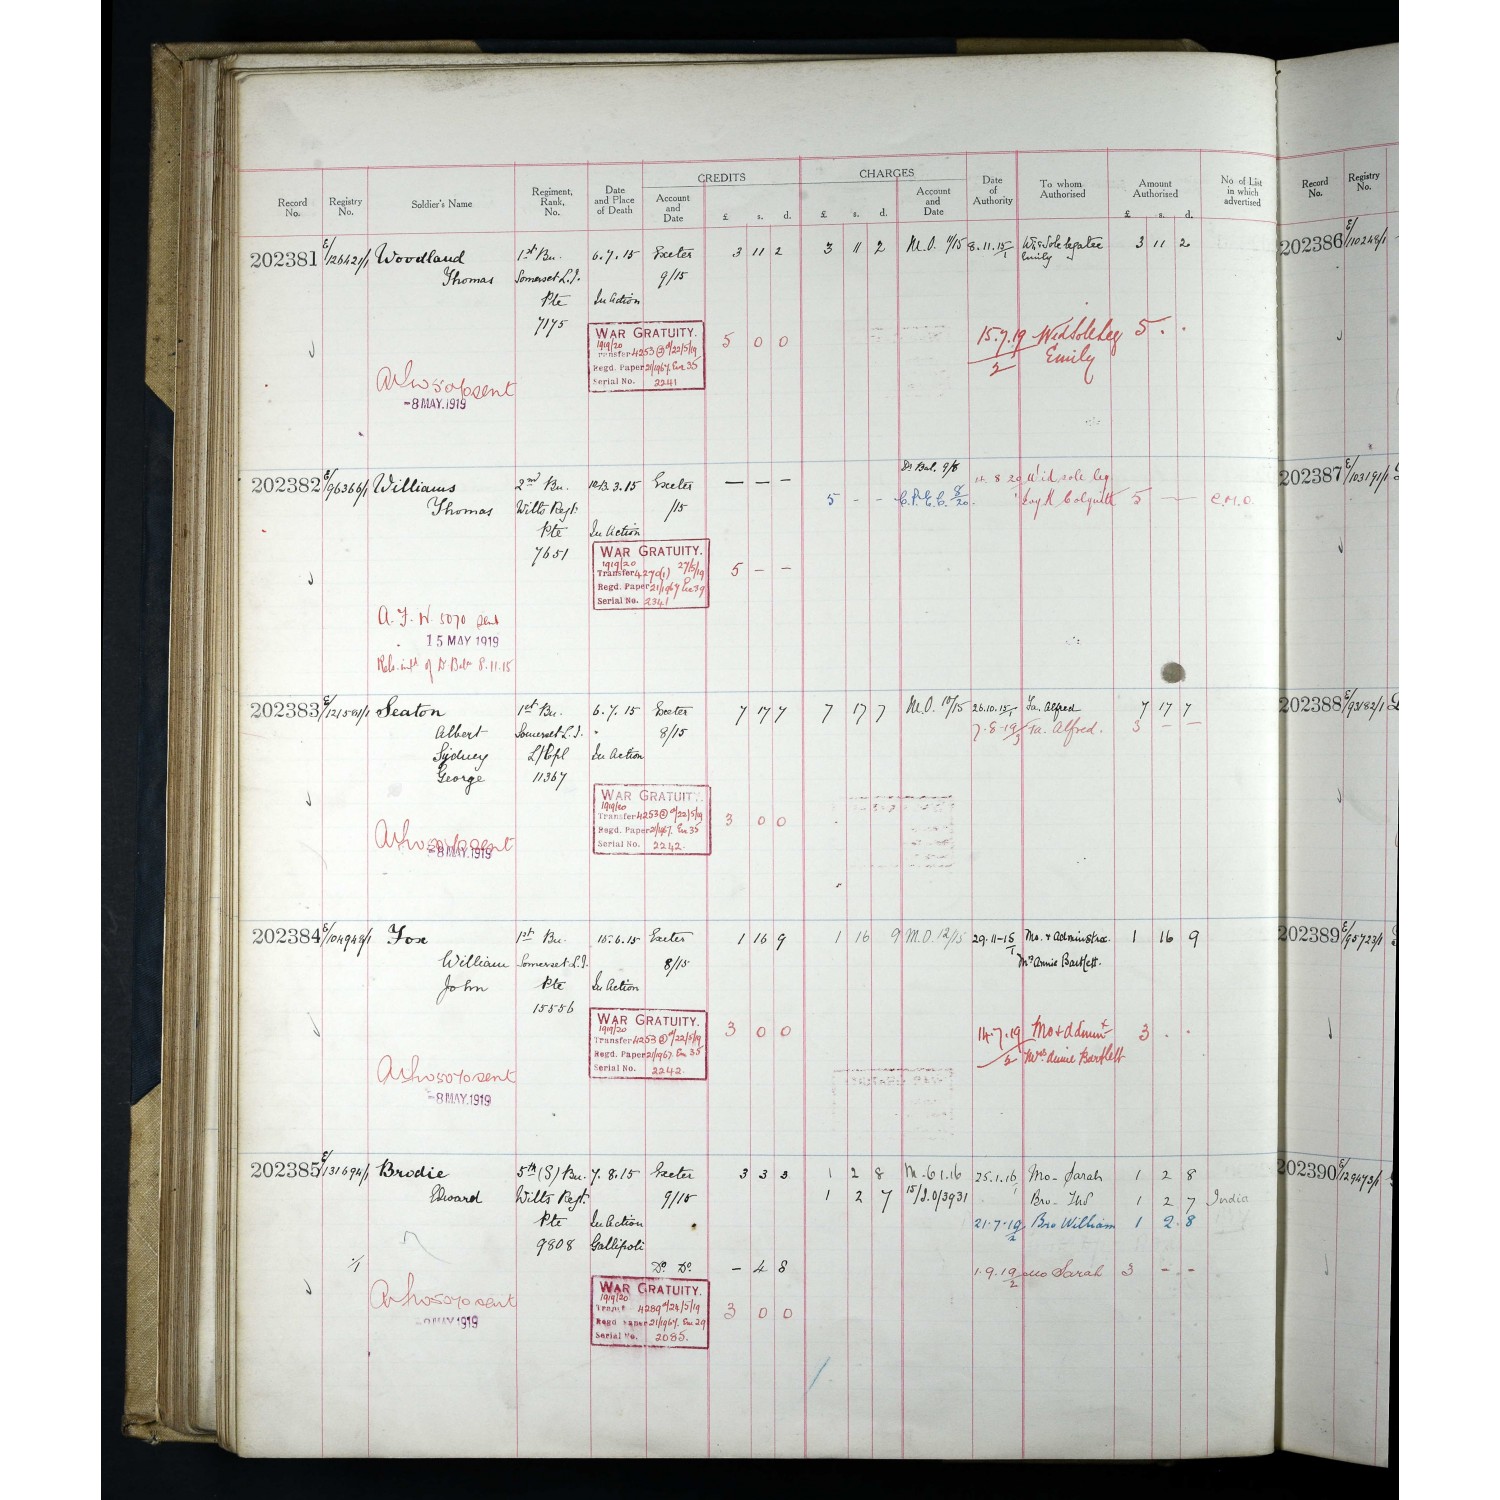 CREDITS CHARGES
Record No. Registry No. Soldier's Name Regiment, Rank, No. Date and Place of Death Account and Date £ s. d. £ s. d. Account and Date Date of Authority To whom Authorised Amount Authorised £ s. d. No of List in which advertised Record No. Registry No.
202381 E/126421/1 Woodland 1st Bn. 6.7.15 Exeter 3 11 2 3 11 2 M.O. 11/15 8.11.15/1 Wid Sole legatee 3 11 2 202386 E/110248/1
Thomas Somerset L.I. 9/15 Emily
Pte In Action
7175
WAR GRATUITY. 5 0 0 15.7.19/2 Wid Sole Leg 5 . .
1919/20 Emily
Transfer 4253 22/5/19
Regd. Paper 21/1967. Enc 35
Serial No. 2241
sent
-8 MAY.1919
202382 E/96366/1 Williams 2nd Bn. 10-13.3.15 Exeter — — — Dr Bal. 9/8 14.8.20 Wid sole leg 202387 E/103191/1
Thomas Wilts Regt. /15 5 - - 8/20 5 — — E.M.O.
Pte In Action
7651
WAR GRATUITY.
1919/20 27/5/19
Transfer 4270(1) 5 — —
Regd. Paper 21/1967 Enc 39
Serial No. 2341
A.F.W 5070 sent
15 MAY 1919
8.11.15
202383 E/121581/1 Seaton 1st Bn. 6.7.15 Exeter 7 17 7 7 17 7 M.O. 10/15 26.10.15/1 Fa. Alfred 7 17 7 202388 E/93182/1
Albert Somerset L.I. " 8/15 7.8.19/3 Fa. Alfred. 3 — —
Sydney L/Cpl In Action
George 11367
WAR GRATUITY.
1919/20
Transfer 4253 22/5/19 3 0 0
Regd. Paper 21/1967. Enc 35
Serial No. 2242.
sent
-8 MAY.1919
202384 E/104948/1 Fox 1st Bn. 15.6.15 Exeter 1 16 9 1 16 9 M.O. 12/15 29.11-15/1 Mo. & Adminstrx. 1 16 9 202389 E/95723/1
William Somerset L.I. 8/15 Mrs Annie Bartlett.
John Pte In Action
15556
WAR GRATUITY. 3 0 0 14.7.19/2 Mo & Admintx 3 . .
1919/20 Mrs Annie Bartlett
Transfer 4253 22/5/19
Regd. Paper 21/1967. Enc 35
Serial No. 2242.
5070 sent
-8 MAY.1919
202385 E/131694/1 Brodie 5th (S) Bn. 7.8.15 Exeter 3 3 3 1 2 8 M.O 61.16 25.1.16/1 Mo- Sarah 1 2 8 202390 E/129473/1
Edward Wilts Regt. 9/15 1 2 7 15/I.0/3931 Bro- Thos 1 2 7 India
Pte In Action 21.7.19/2 Bro William 1 2 8
9808 Gallipoli
Do. Do. — 4 8 1.9.19/2 mo Sarah 3 — —
WAR GRATUITY.
1919/20
Transf 4289 24/5/19 3 0 0
Regd Paper 21/1967. Enc 29
Serial No. 2085.
5070 sent
MAY 1919